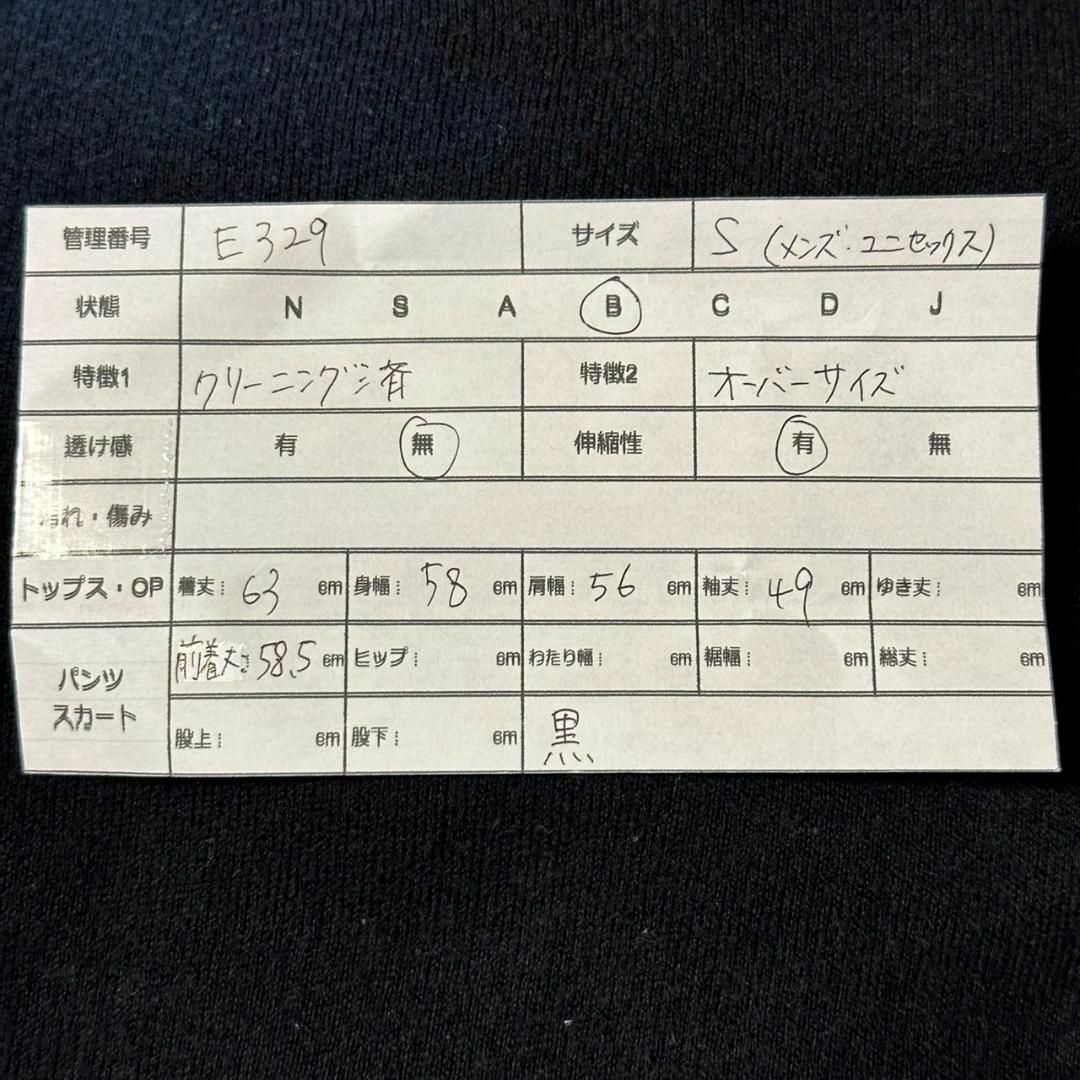 管理番号 E329 サイズ S (メンズ・ユニセックス)
状態 N S A B C D J
特徴1 クリーニング済 特徴2 オーバーサイズ
透け感 有 無 伸縮性 有 無
れ・傷み
トップス・OP 着丈: 63 cm 身幅: 58 cm 肩幅: 56 cm 袖丈: 49 cm ゆき丈: cm
パンツ スカート 前着丈: 58.5 cm ヒップ: cm わたり幅: cm 裾幅: cm 総丈: cm
股上: cm 股下: cm 黒